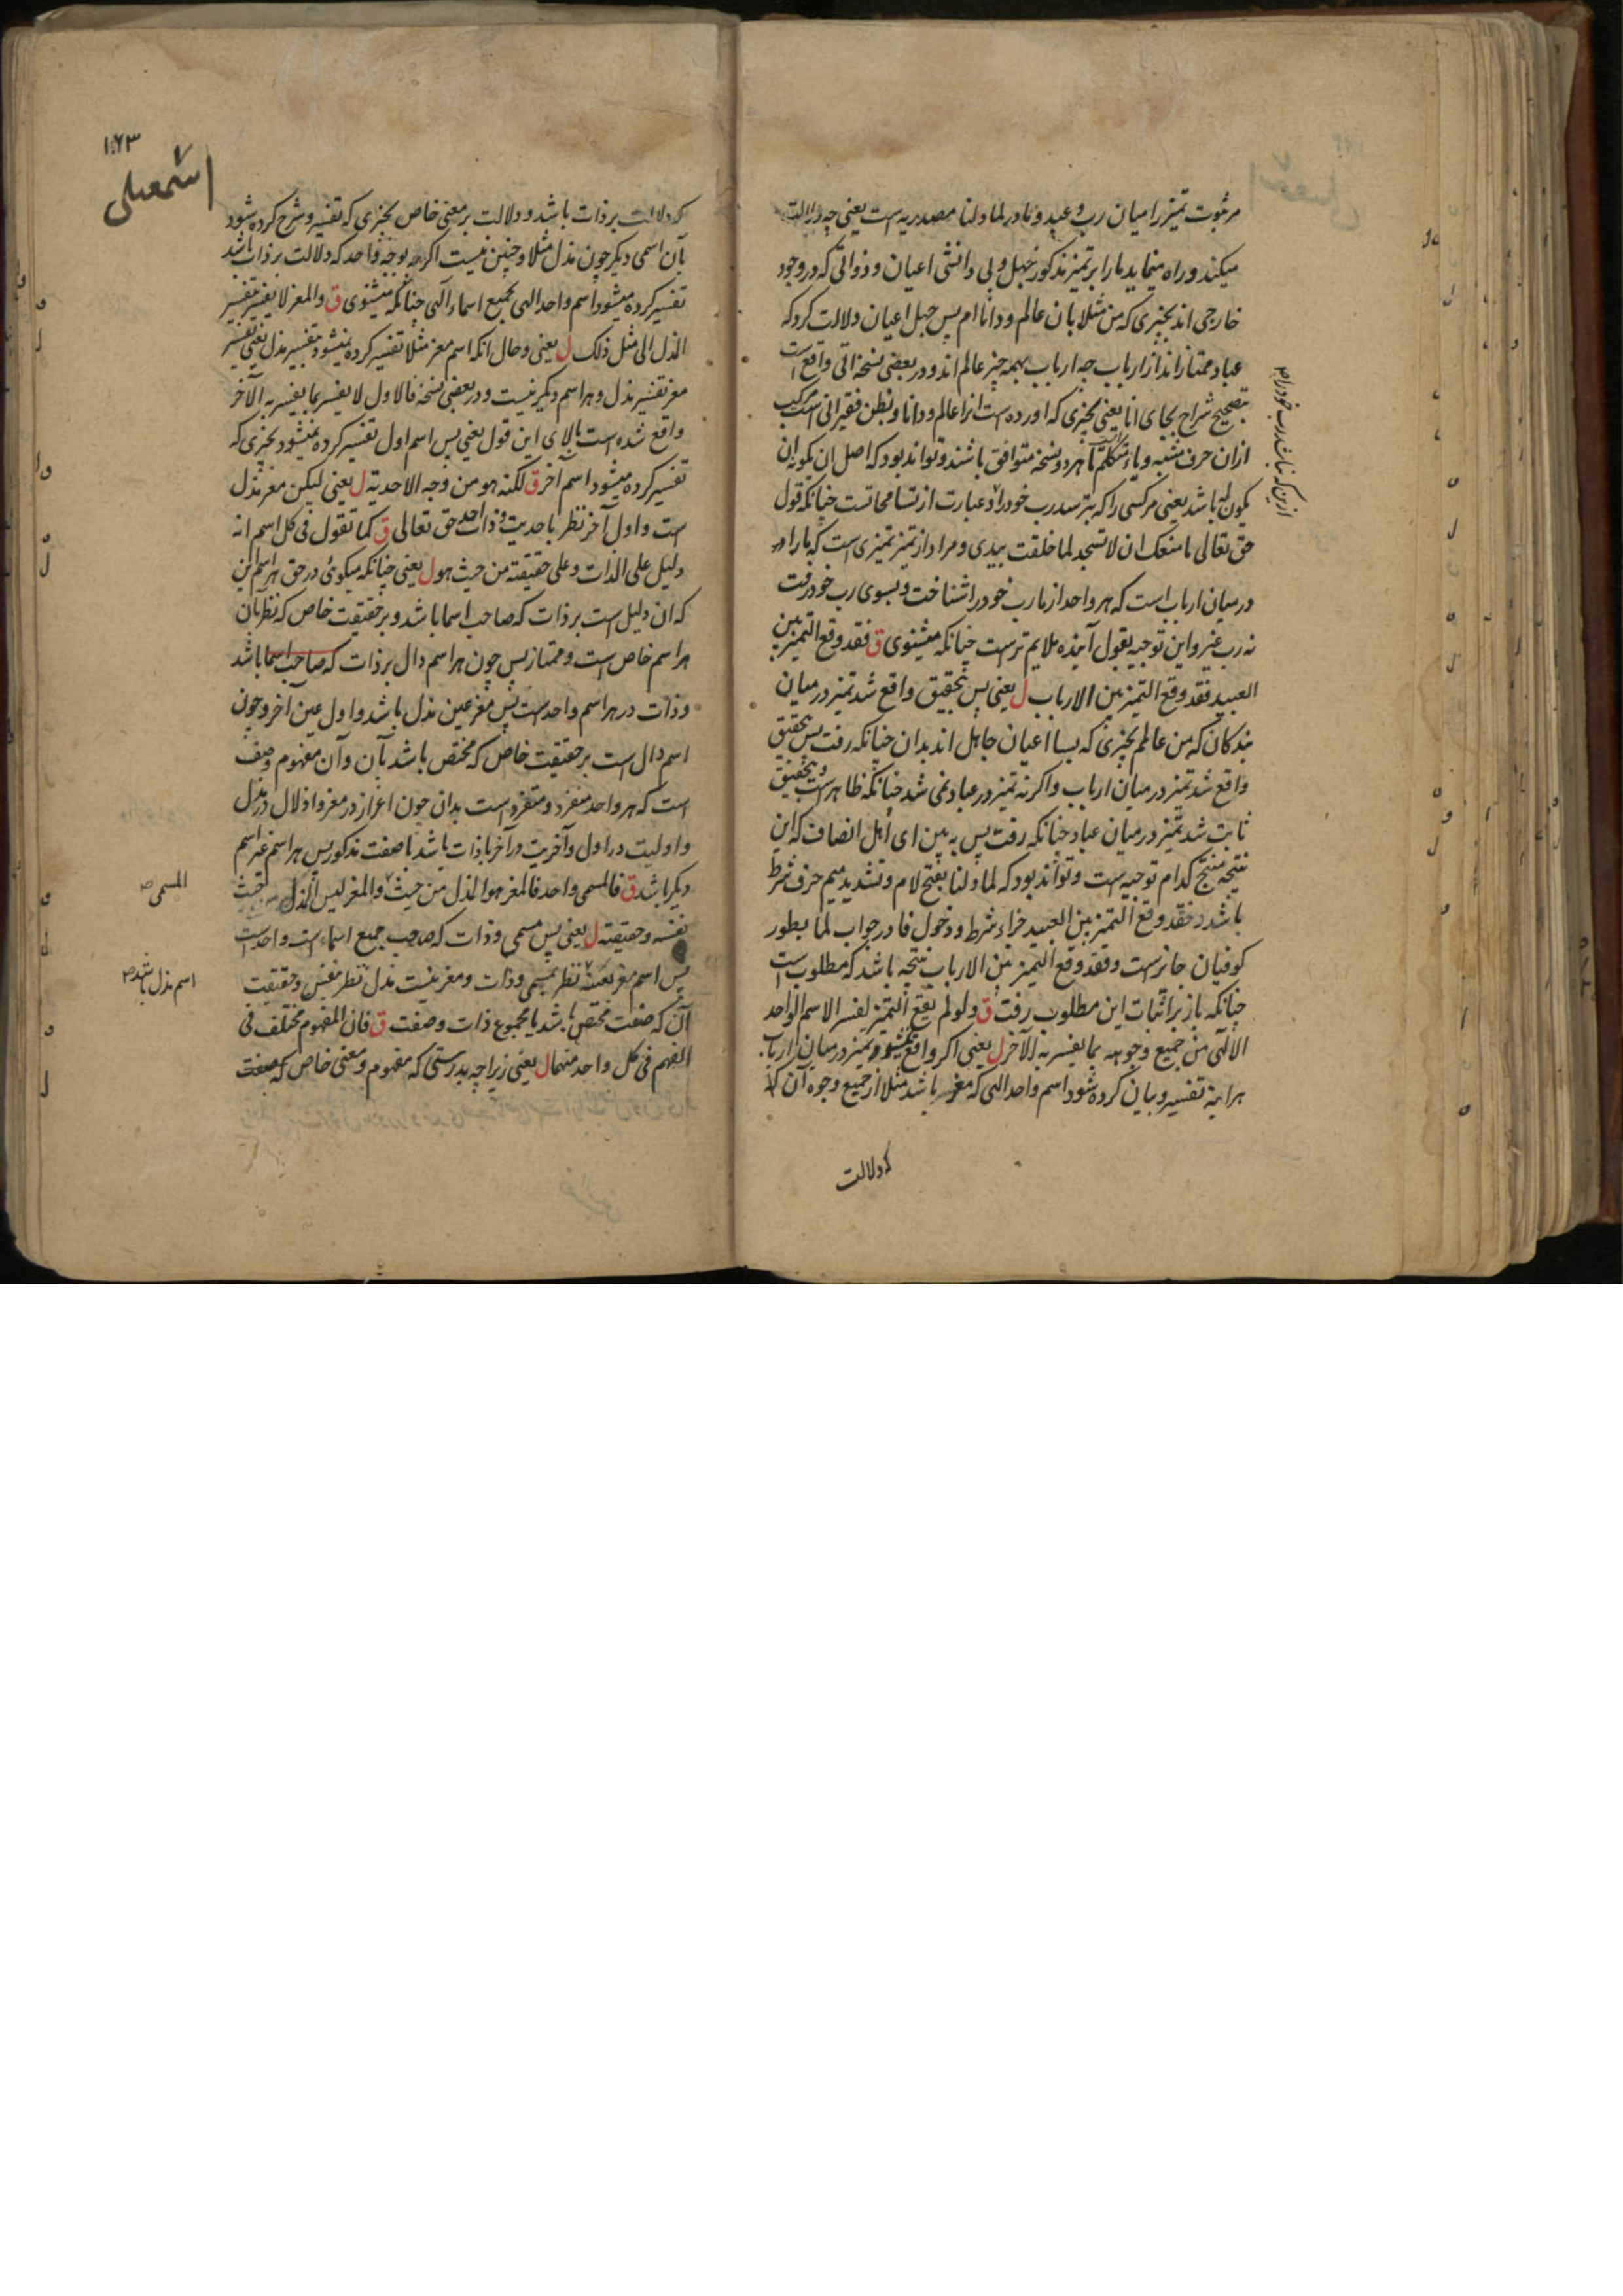 مرئوب تمیز را میان رب و عبد و ما در لما دلنا مصدریه است یعنی چه دلالت
میکند و راه مینماید ما را بر تمیز مذکور جهل و بی دانشی اعیان و ذواتی که در وجود
خارجی اند بچیزی که من مثلا بان عالم و دانا ام پس جهل اعیان دلالت کرد که
عباد ممتاز اند از ارباب چه ارباب بهمه چیز عالم اند و در بعضی نسخه اتی واقع است
بتصحیح شراح بجای انا یعنی بچیزی که اورده است انرا عالم و دانا و بظن فقیر انی است مرکب
ازان حرف مشبه و یاء متکلم تا هر دو نسخه متوافق باشند و تواند بود که اصل ان یکونه ان
یکون له باشد یعنی مرکسی را که بترسد رب خود را و عبارت از تسامحاتست چنانکه قول
حق تعالی ما منعک ان لا تسجد لما خلقت بیدی و مراد از تمیز تمیزی است که ما را
در میان ارباب است که هر واحد از ما رب خود را شناخت و بسوی رب خود رفت
نه رب غیر و این توجیه بقول آینده ملایم ترست چنانکه میشنوی ق فقد وقع التمیز بین
العبید فقد وقع التمیز بین الارباب ل یعنی پس بتحقیق واقع شد تمیز در میان
بندکان که من عالمم بچیزی که بسا اعیان جاهل اند بدان چنانکه رفت پس بتحقیق
واقع شد تمیز در میان ارباب و اکر نه تمیز در عباد نمی شد چنانکه ظاهر است و بتحقیق
ثابت شد تمیز در میان عباد چنانکه رفت پس به بین ای اهل انصاف که این
نتیجه منتج کدام توجیه است و تواند بود که لما دلنا بفتح لام و تشدید میم حرف شرط
باشد و فقد وقع التمیز بین العبید جزاء شرط و دخول فا در جواب لما بطور
کوفیان جایزست و فقد وقع التمیز بین الارباب نتیجه باشد که مطلوب است
چنانکه باز بر اثبات این مطلوب رفت ق و لو لم یقع التمیز لفسر الاسم الواحد
الالهی من جمیع وجوهه بما یفسر به الآخر ل یعنی اکر واقع نمیشد تمیز در میان ارباب
هر اینه تفسیر و بیان کرده شود اسم واحد الهی که معز باشد مثلا از جمیع وجوه آن که
که دلالت
۱۶۳
اسمعیلی
که دلالت بر ذات باشد و دلالت بر معنی خاص بچیزی که تفسیر و شرح کرده شود
بآن اسمی دیکر چون مذل مثلا و چنین نیست اکرچه بوجه واحد که دلالت بر ذات باشد
تفسیر کرده میشود اسم واحد الهی بجمیع اسماء الهی چنانکه میشنوی ق و المعز لا یفسر بتفسیر
المذل الی مثل ذلک ل یعنی و حال انکه اسم معز مثلا تفسیر کرده نمیشود بتفسیر مذل یعنی تفسیر
معز تفسیر مذل و هر اسم دیکر نیست و در بعضی نسخه فالاول لا یفسر بما یفسر به الآخر
واقع شده است بالای این قول یعنی پس اسم اول تفسیر کرده نمیشود بچیزی که
تفسیر کرده میشود اسم آخر ق لکنه هو من وجه الاحدیة ل یعنی لیکن معز مذل
است و اول آخر نظر باحدیت و ذات احد حق تعالی ق کما تقول فی کل اسم انه
دلیل علی الذات و علی حقیقته من حیث هو ل یعنی چنانکه میکوئی در حق هر اسم این
که ان دلیل است بر ذات که صاحب اسما باشد و بر حقیقت خاص که نظر بان
هر اسم خاص است و ممتاز پس چون هر اسم دال بر ذات که صاحب اسما باشد
و ذات در هر اسم واحد است پس معز عین مذل باشد و اول عین آخر و چون
اسم دال است بر حقیقت خاص که مختص باشد بآن و آن مفهوم وصف
است که هر واحد منفرد و متفرد است بدان چون اعزاز در معز و اذلال در مذل
و اولیت در اول و آخریت در آخر یا ذات باشد با صفت مذکور پس هر اسم غیر اسم
دیکر باشد ق فالمسمی واحد فالمعز هو المذل من حیث و المعز لیس المذل من حیث
نفسه و حقیقته ل یعنی پس مسمی و ذات که صاحب جمیع اسماء است واحد است
پس اسم معز نظر بمسمی و ذات و معز نیست مذل نظر بنفس و حقیقت
آن که صفت مختص باشد یا مجموع ذات و صفت ق فان المفهوم مختلف فی
الفهم فی کل واحد منهما ل یعنی زیرا چه بدرستی که مفهوم و معنی خاص که صفت
المسمی
اسم مذل باشد